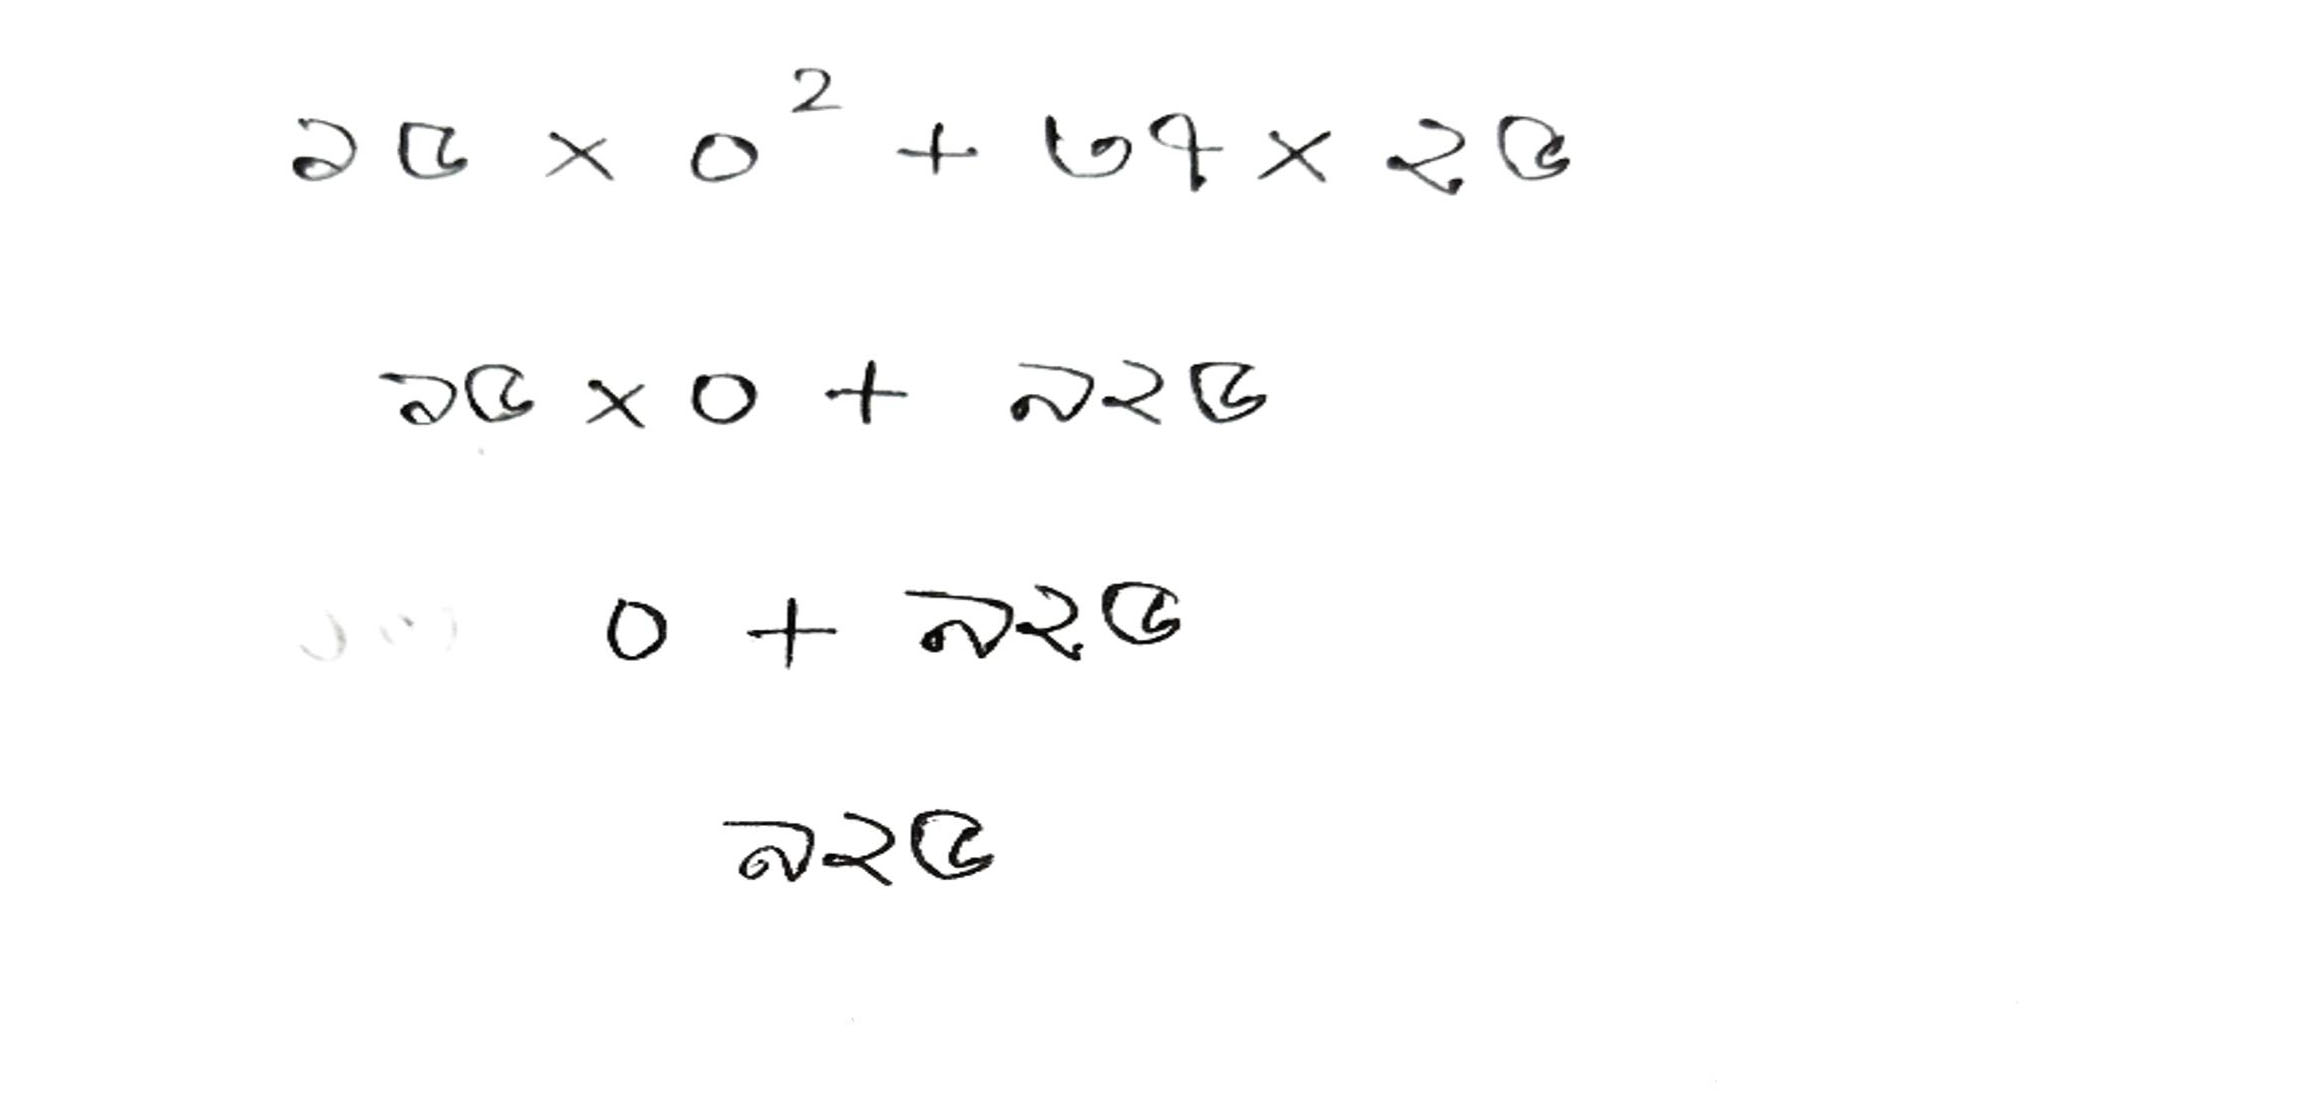 ১৫ × ০² + ৩৭ × ২৫
১৫ × ০ + ৯২৫
০ + ৯২৫
৯২৫